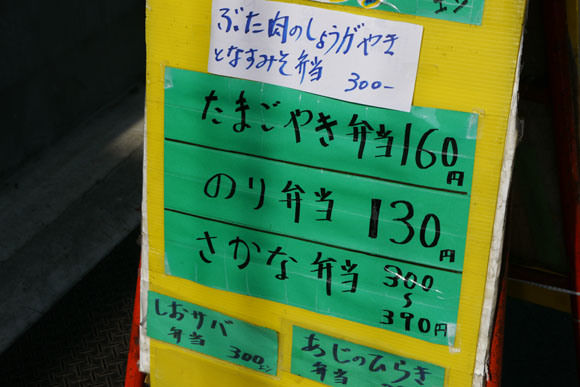 ぶた肉のしょうがやき
となすみそ弁当 300-
たまごやき弁当160円
のり弁当 130円
さかな弁当 300
～
390円
しおサバ
弁当 300エン
あじのひらき
弁当